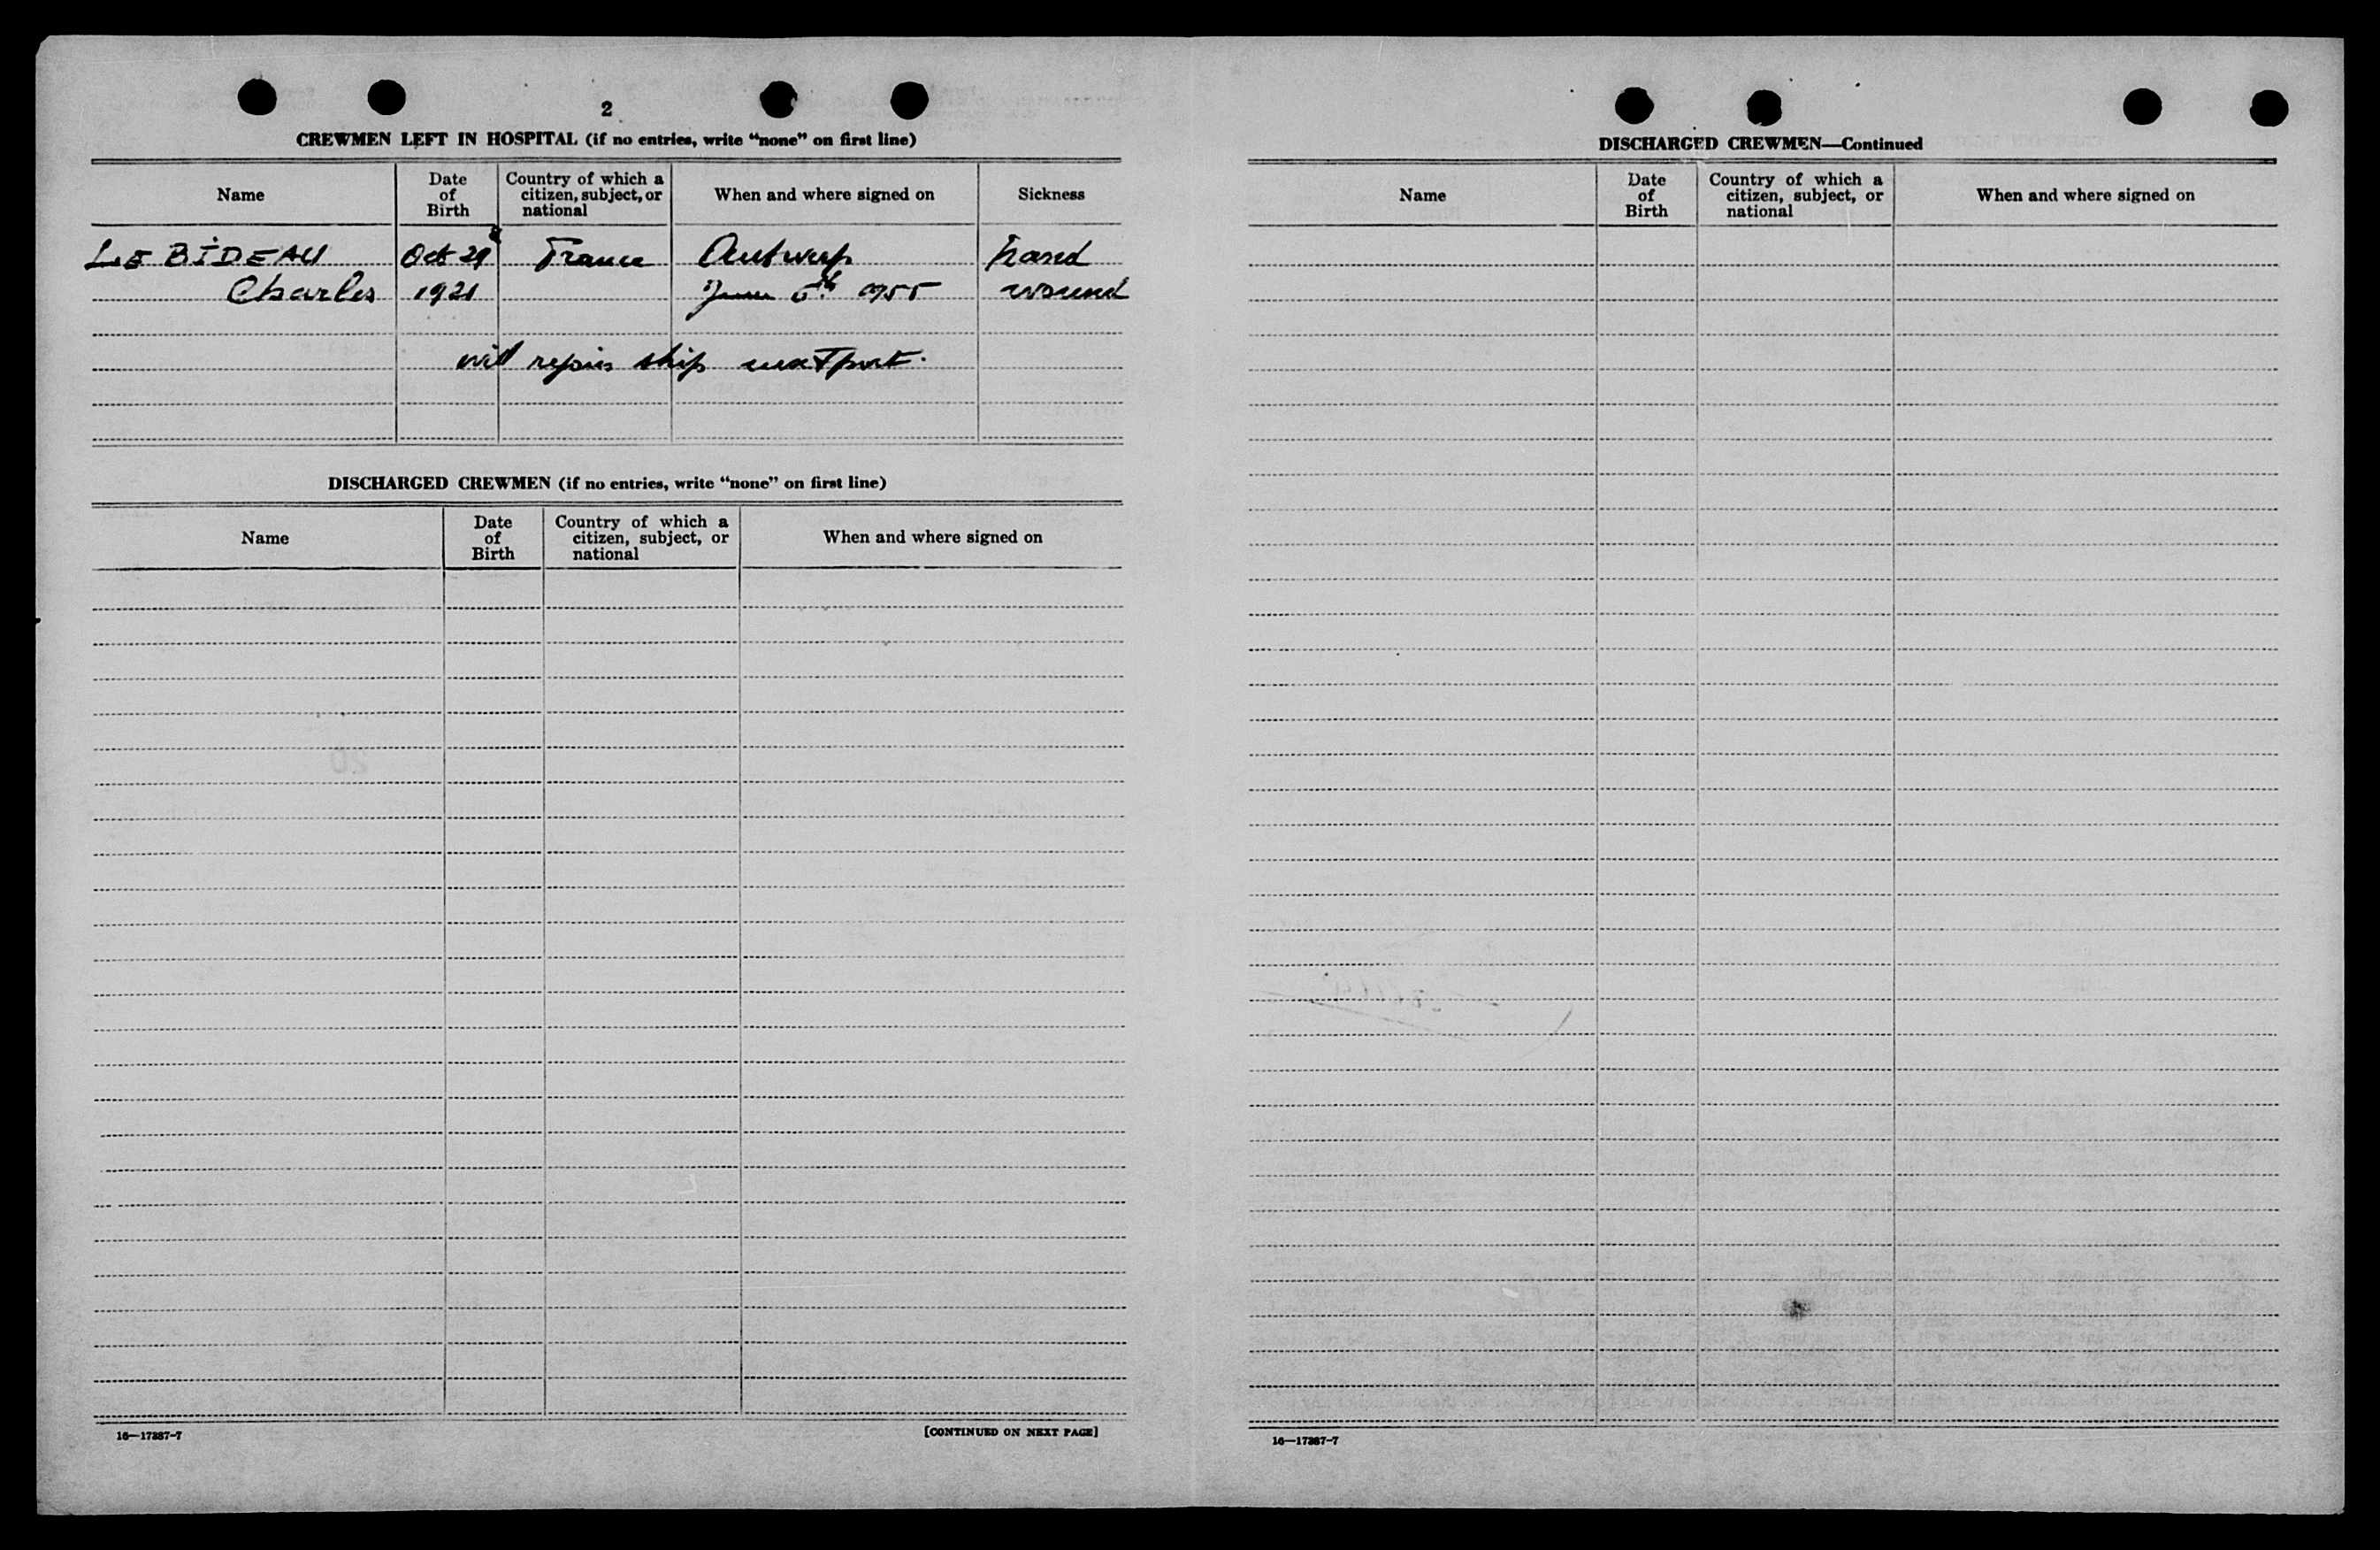 2
CREWMEN LEFT IN HOSPITAL (if no entries, write "none" on first line)
Name
Date of Birth
Country of which a citizen, subject, or national
When and where signed on
Sickness
LE BIDEAU Oct 29 France Antwerp hand
Charles 1921 June 5th 1955 wound
will rejoin ship next port.
DISCHARGED CREWMEN (if no entries, write "none" on first line)
Name
Date of Birth
Country of which a citizen, subject, or national
When and where signed on
16—17387-7
[CONTINUED ON NEXT PAGE]
DISCHARGED CREWMEN—Continued
Name
Date of Birth
Country of which a citizen, subject, or national
When and where signed on
16—17387-7